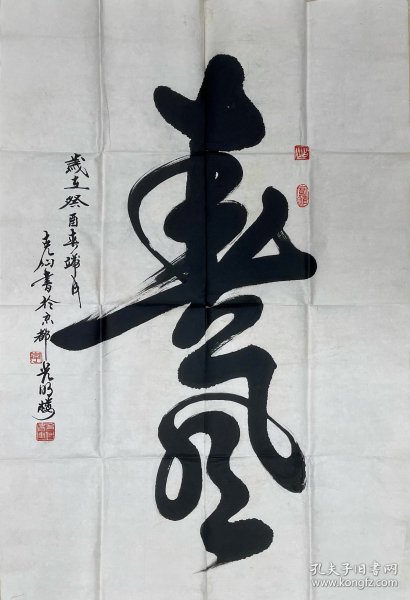 春風
歲在癸酉春端月
克仙書於京都光明樓
孔夫子旧书网
www.kongfz.com